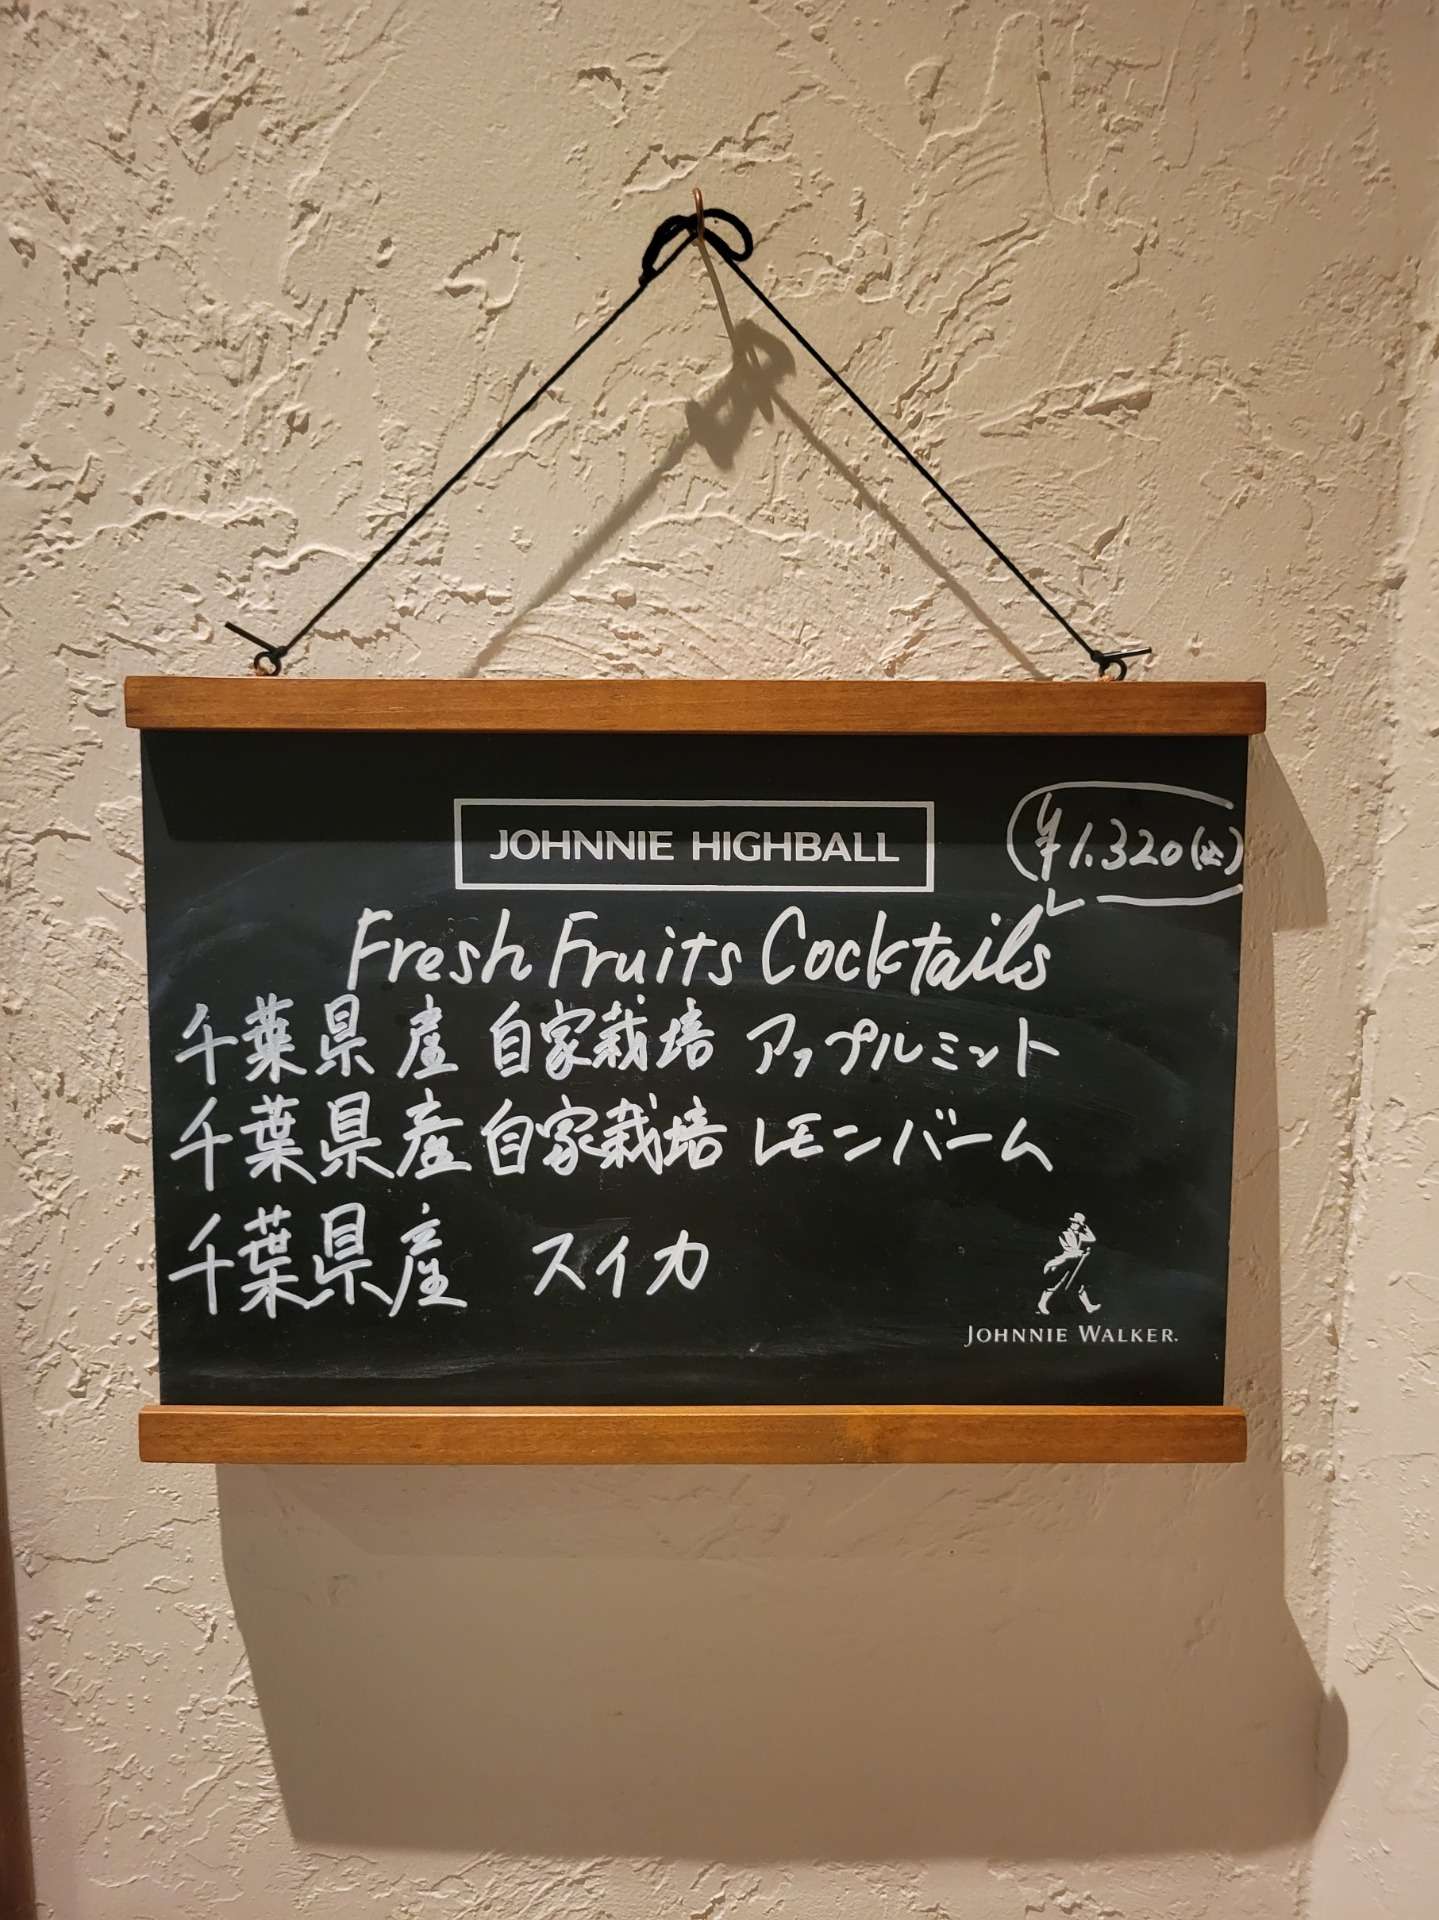 JOHNNIE HIGHBALL
¥1.320(込)
Fresh Fruits Cocktails
千葉県産 自家栽培 アップルミント
千葉県産 自家栽培 レモンバーム
千葉県産 スイカ
JOHNNIE WALKER.